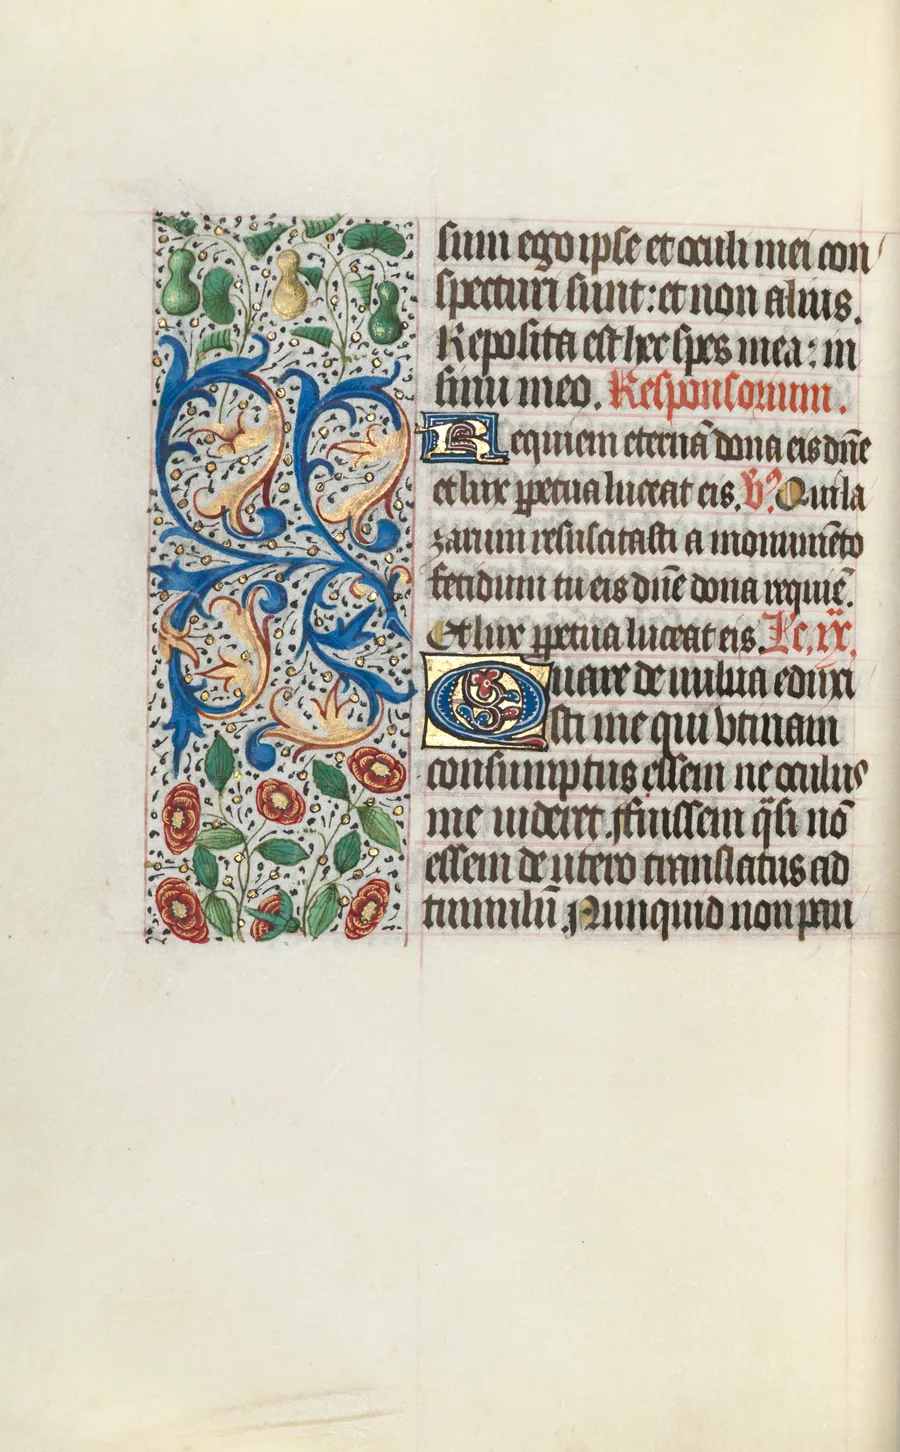 sum ego ipse et oculi mei con
specturi sunt: et non alius.
Reposita est hec spes mea: in
sinu meo. Responsorium.
Requiem eternā dona eis dn̄e
et lux ꝑpetua luceat eis. V̉. Qui la
zarum resuscitasti a monumēto
fetidum tu eis dn̄e dona requiē.
Et lux ꝑpetua luceat eis. Lc. ix.
Quare de uulua eduxi
sti me qui vtinam
consumptus essem ne oculus
me uideret. ffuissem q̄si nō
essem de utero translatus ad
tumulū. Nunquid non pau